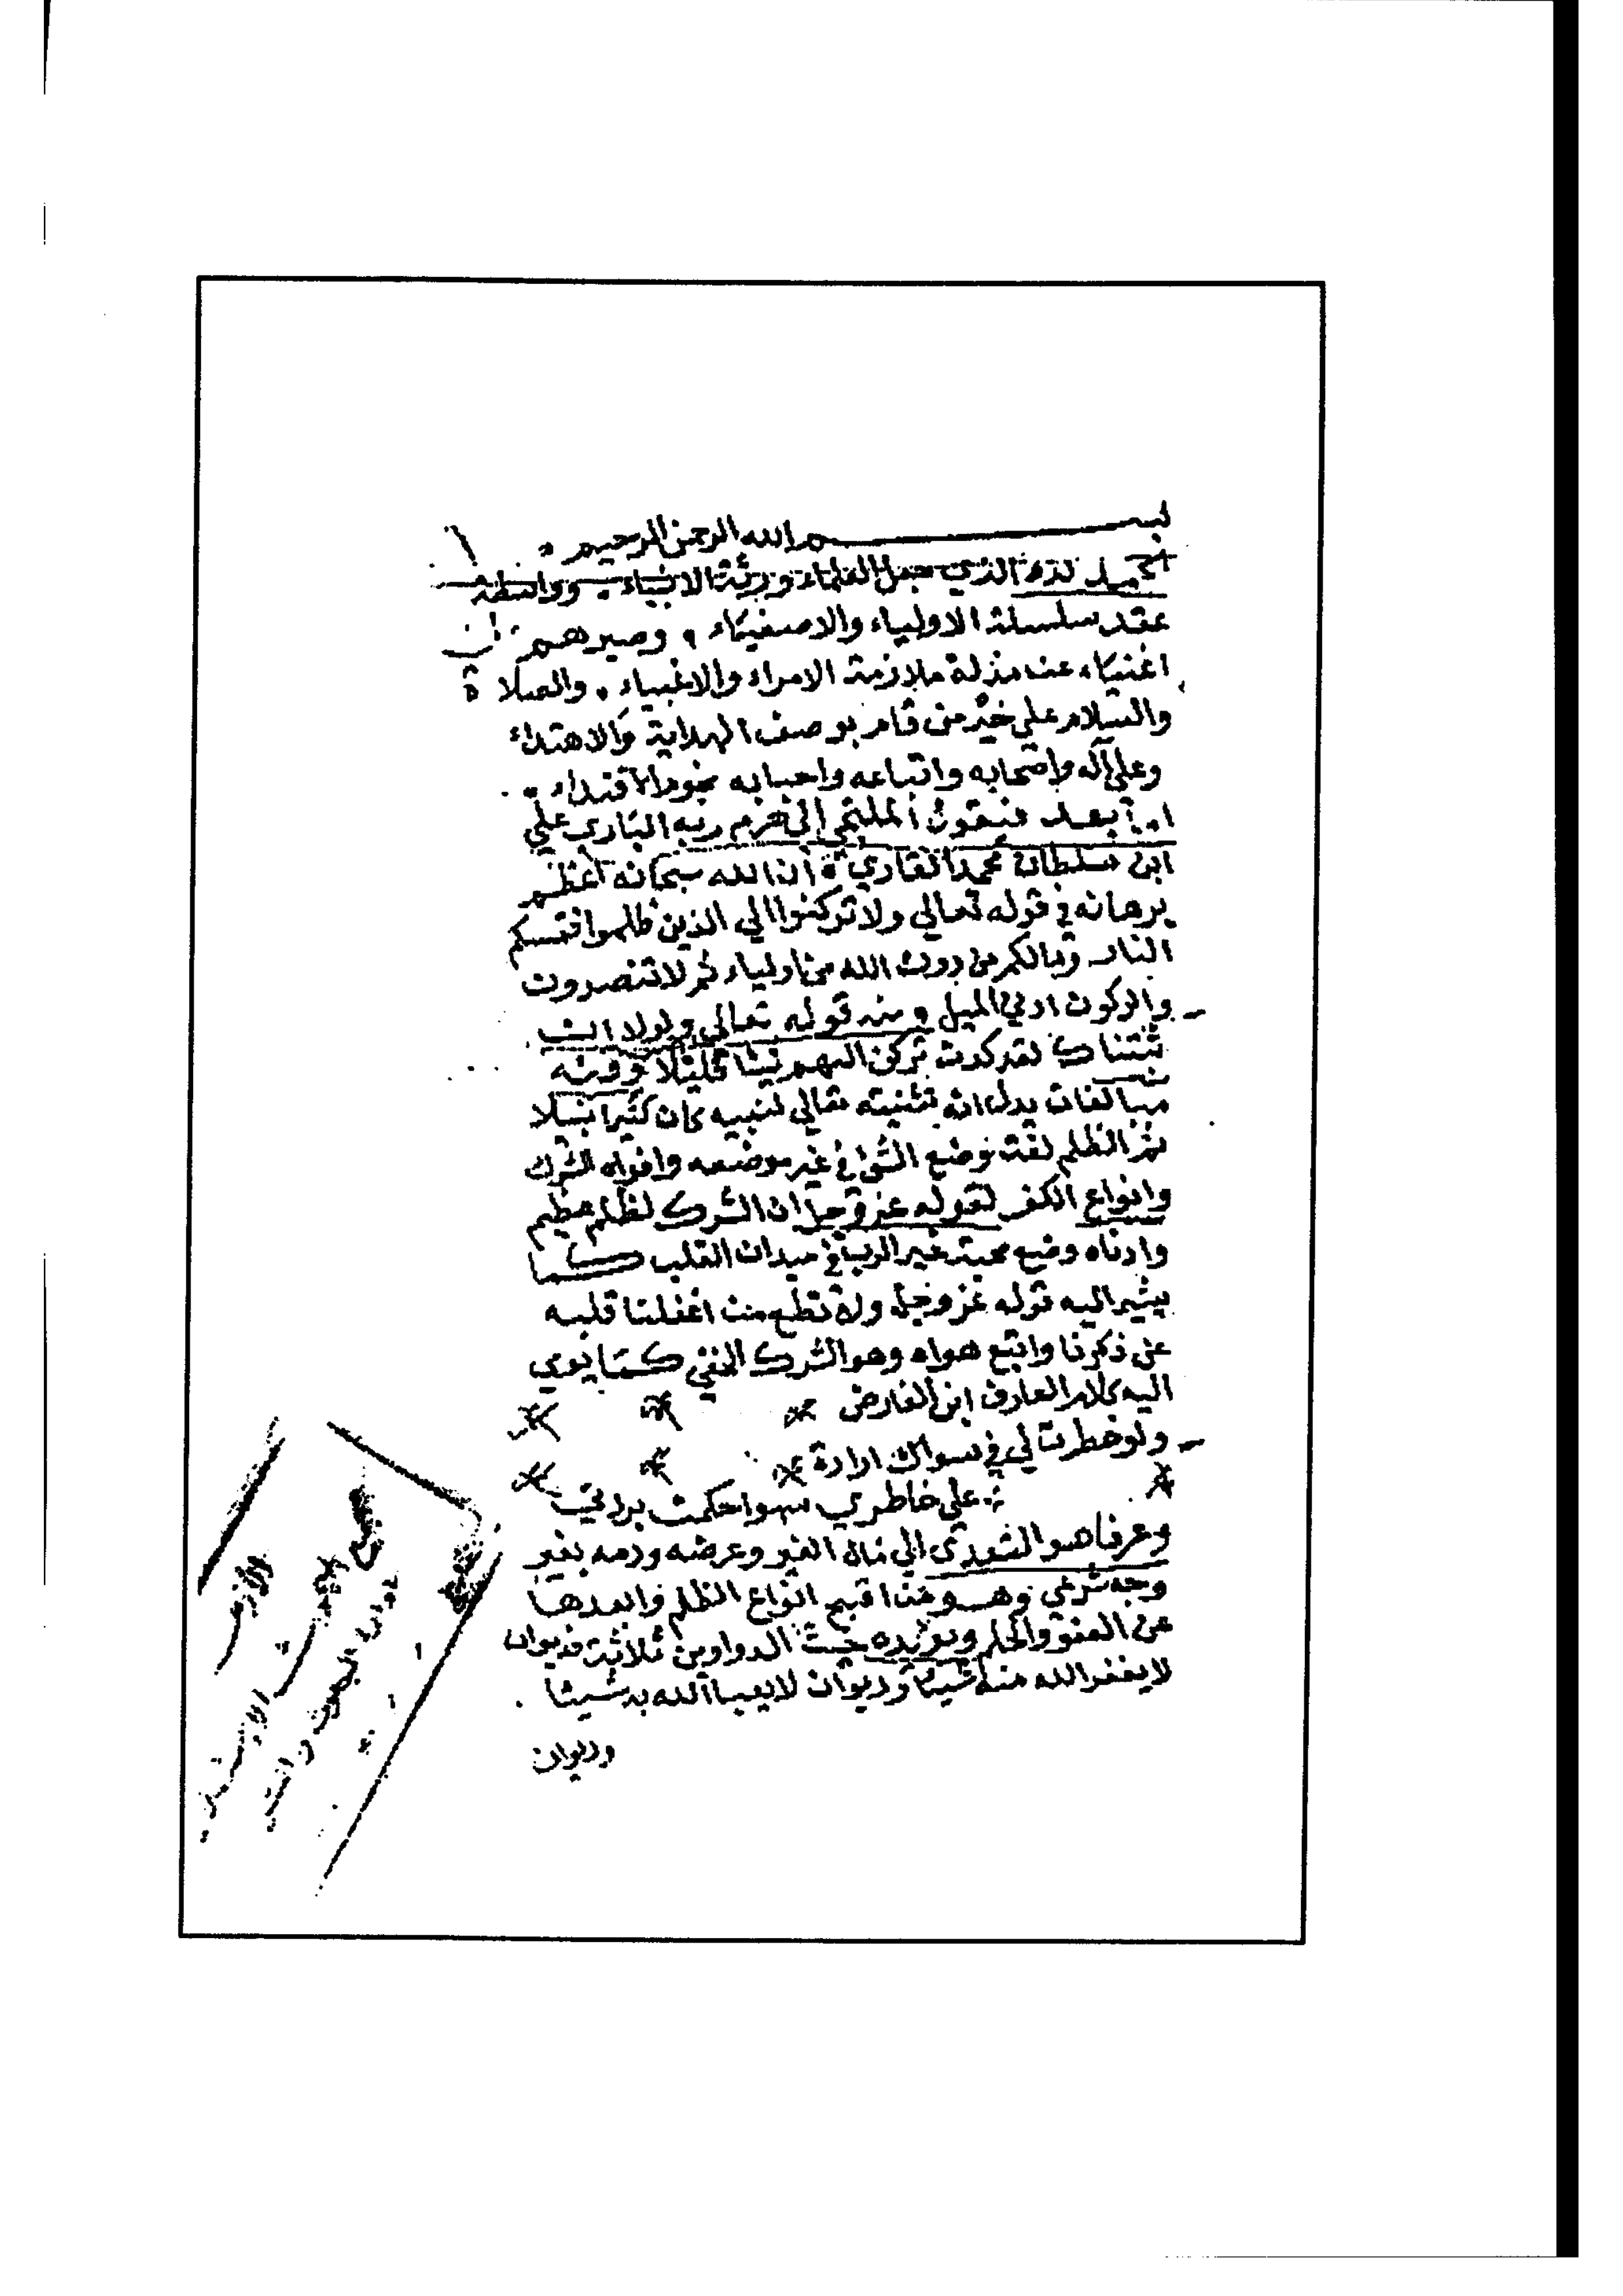 بسم الله الرحمن الرحيم
الحمد لله الذي جعل العلماء ورثة الانبياء وواسطة
عقد سلسلة الاولياء والاصفياء وصيرهم
اغنياء عن مذلة ملازمة الامراء والاغبياء والصلاة
والسلام على خير من قام بوصف الهداية والاهتداء
وعلى آله واصحابه واتباعه واحبابه نجوم الاقتداء
اما بعد فيقول الملتجي الى حرم ربه الباري علي
ابن سلطان محمد القاري ان الله سبحانه اعظم
برهانه في قوله تعالى ولا تركنوا الى الذين ظلموا فتمسكم
النار وما لكم من دون الله من اولياء ثم لا تنصرون
والركون ادنى الميل ومنه قوله تعالى ولولا ان
ثبتناك لقد كدت تركن اليهم شيئا قليلا وفيه
مبالغات يدل انه تعالى لنبيه كان
ثم الظلم لغة وضع الشئ في غير موضعه واقواه الشرك
وانواع الكفر لقوله عز وجل ان الشرك لظلم عظيم
وادناه وضع محبة غير الرب في ميدان القلب كما
يشير اليه قوله عز وجل ولا تطع من اغفلنا قلبه
عن ذكرنا واتبع هواه وهو الشرك الخفي كما يومي
اليه كلام العارف ابن الفارض
ولو خطرت لي في سواك ارادة
على خاطري سهوا حكمت بردتي
وعرفا هو التعدي الى مال الغير وعرضه ودمه بغير
وجه شرعي وهو من اقبح انواع الظلم وابعدها
عن العفو والحلم ويؤيده حديث الدواوين ثلاثة فديوان
لا يغفر الله منه شيئا وديوان لا يعبأ الله به شيئا
وديوان